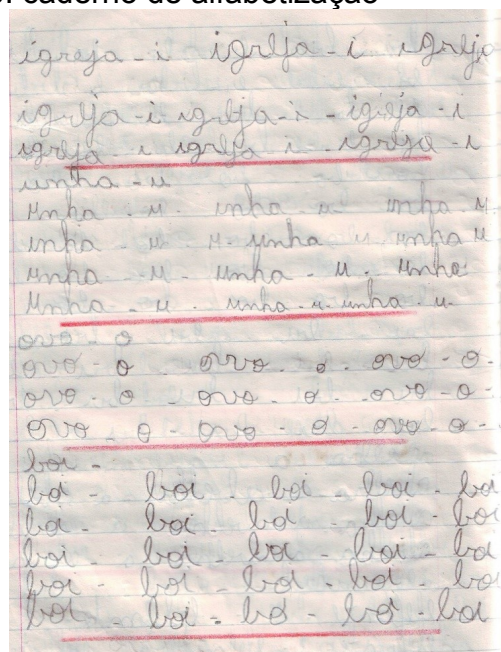 caderno de alfabetização
igreja - i igreja - i igreja
igreja - i igreja - i - igreja - i
igreja - i igreja i - igreja - i
unha - u
unha - u - unha - u - unha u
unha - u - u - unha u unha u
unha - u - unha - u - unha
unha - u - unha - u - unha - u -
ovo - o
ovo - o ovo - o - ovo - o -
ovo - o - ovo - o - ovo - o -
ovo - o - ovo - o - ovo - o -
boi -
boi - boi - boi - boi - boi
boi - boi - boi - boi - boi
boi - boi - boi - boi - boi
boi - boi - boi - boi - boi
boi - boi - boi - boi - boi